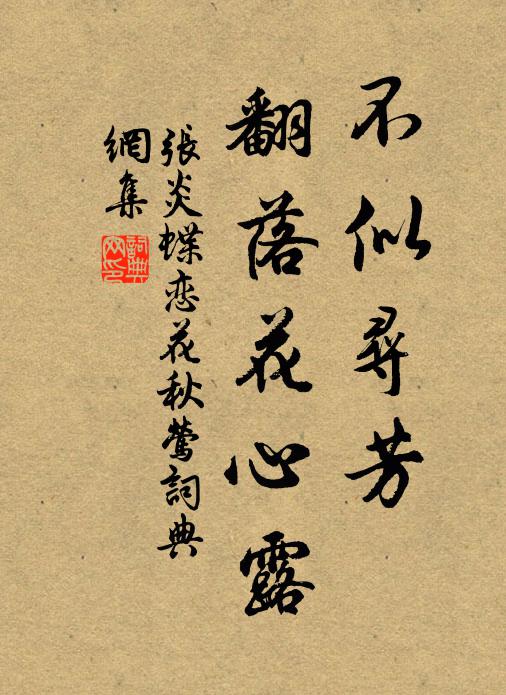 不似尋芳
翻落花心露
張炎蝶恋花秋鶯詞典
網集
詞典
网印